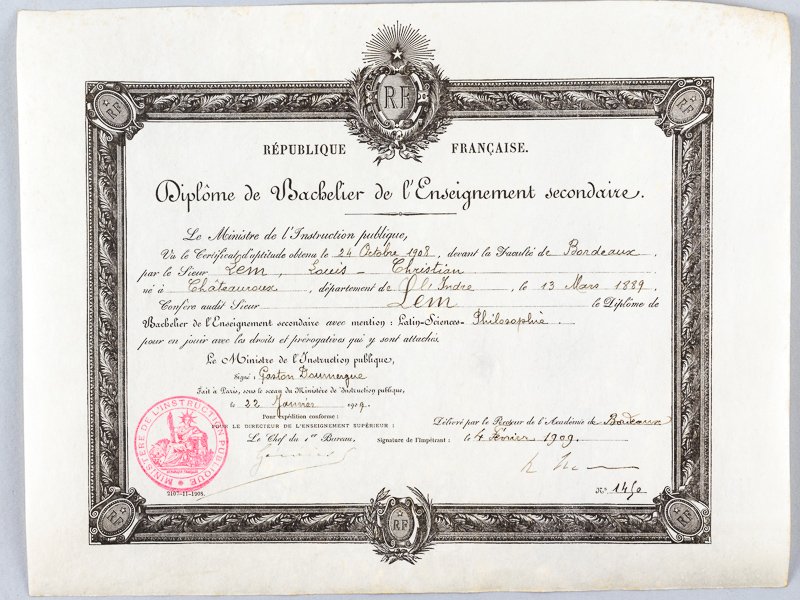 R.F.
RF
RF
RÉPUBLIQUE FRANÇAISE.
Diplôme de Bachelier de l'Enseignement secondaire.
Le Ministre de l'Instruction publique,
Vu le Certificat d'aptitude obtenu le 24 Octobre 1908, devant la Faculté de Bordeaux
par le Sieur Lem, Louis-Christian
né à Châteauroux, département de l'Indre, le 13 Mars 1889,
Confère audit Sieur Lem le Diplôme de
Bachelier de l'Enseignement secondaire avec mention : Latin-Sciences-Philosophie
pour en jouir avec les droits et prérogatives qui y sont attachés.
Le Ministre de l'Instruction publique,
Signé : Gaston Doumergue
Fait à Paris, sous le sceau du Ministère de l'Instruction publique,
le 22 Janvier 1909.
Pour expédition conforme :
POUR LE DIRECTEUR DE L'ENSEIGNEMENT SUPÉRIEUR :
Le Chef du 1er Bureau,
Signature de l'Impétrant :
Délivré par le Recteur de l'Académie de Bordeaux
le 4 Février 1909.
MINISTÈRE DE L'INSTRUCTION PUBLIQUE
2107-11-1908.
N° 1450
RF
RF
RF